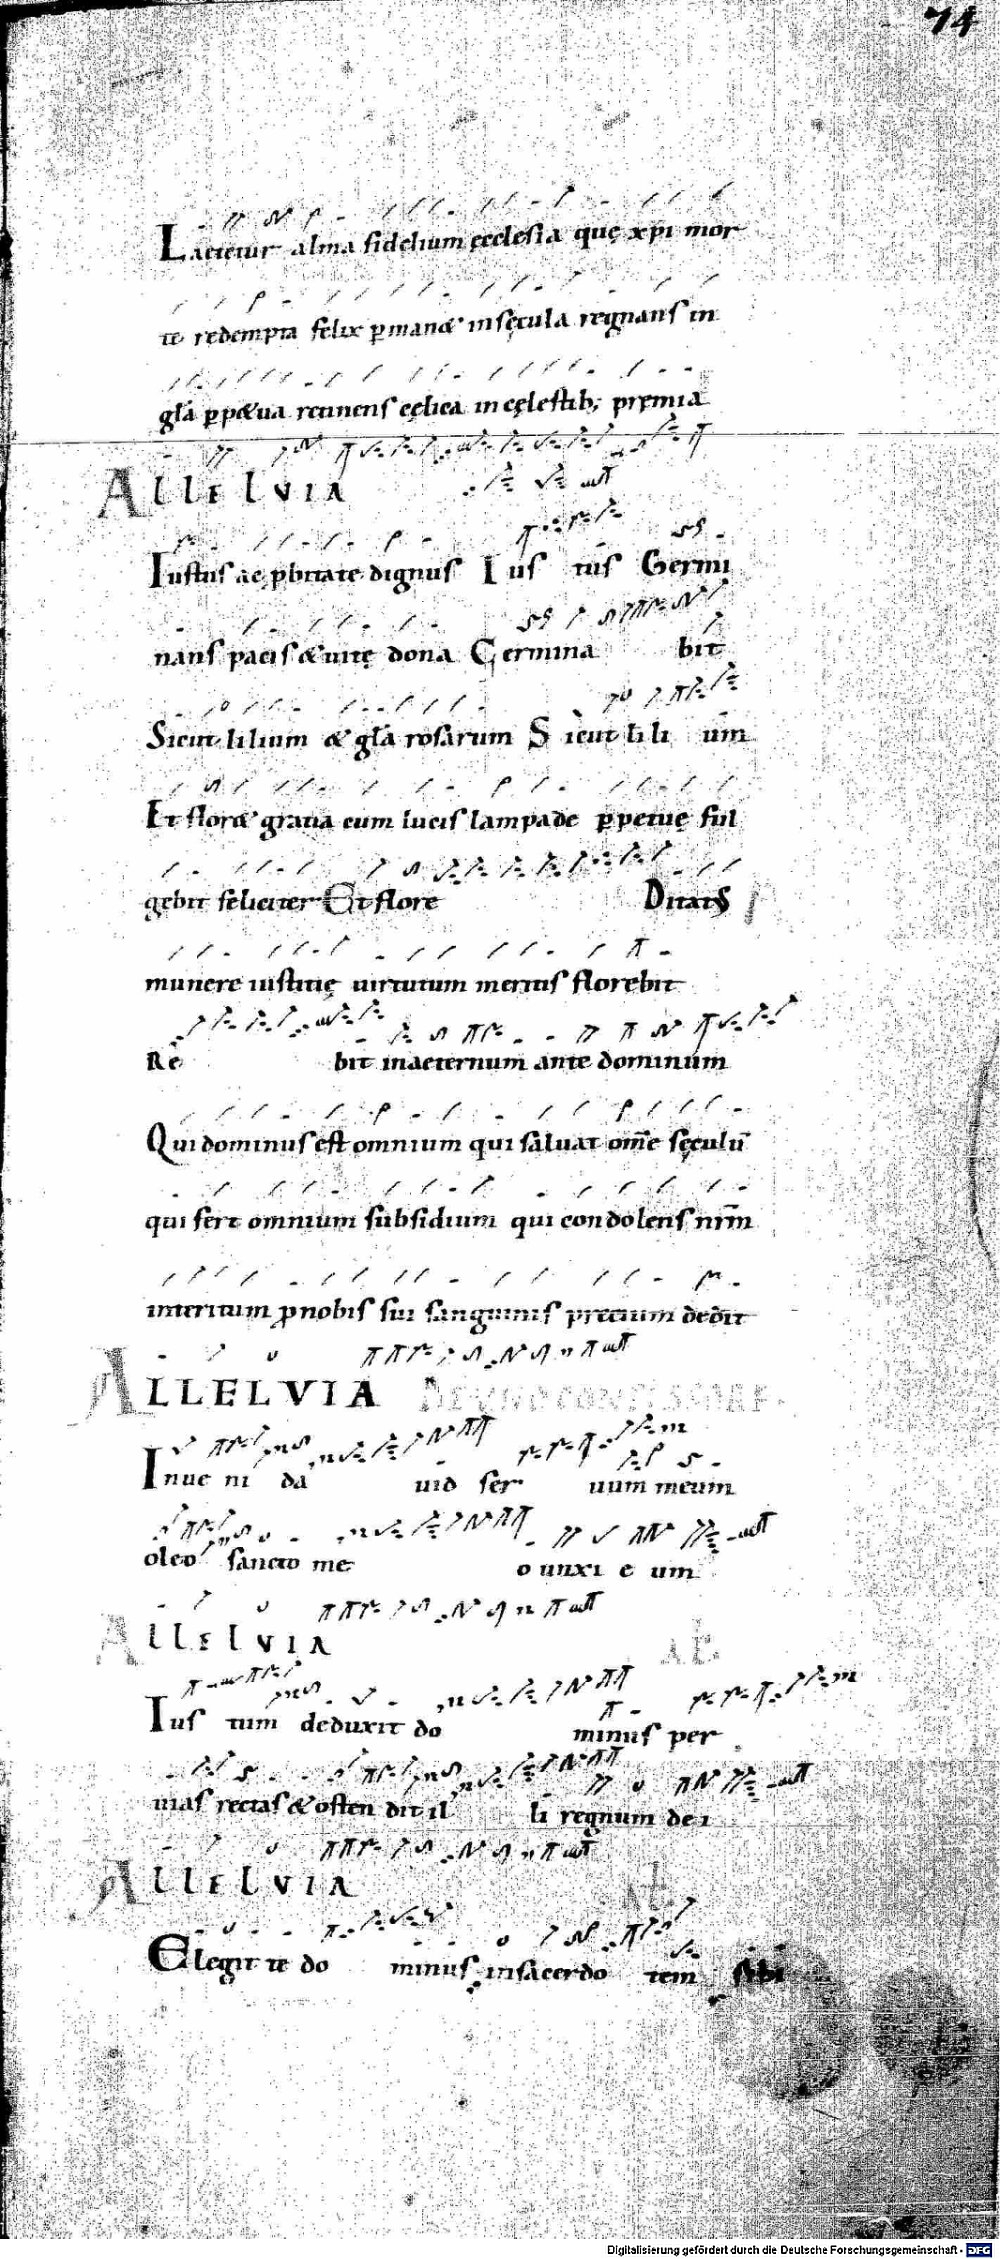 74
Laetetur alma fidelium ęcclesia quę xp̄i mor
te redempta felix p̱manæ insęcula regnans in
glā p̱pætua retinens cęlica incęlestib; pręmia
ALLELVIA
Iustus ac p̱bitate dignus Ius tus Germi
nans pacis & uitę dona Germina bit
Sicut lilium & glā rosarum Sicut li li um
Et floræ gratia cum lucis lampade p̱petuę ful
gebit feliciter Et flore Ditatus
munere iustitię uirtutum meritis florebit
Re bit inaeternum ante dominum
Qui dominus est omnium qui saluat om̄e sęculū
qui fert omnium subsidium qui condolens nr̄m
interitum p̱nobis sui sanguinis precium dedit
ALLELVIA DE UNO CONFESSORE
Inue ni da uid ser uum meum
oleo sancto me o unxi e um
ALLELVIA
Ius tum deduxit do minus per
uias rectas & osten dit il li regnum de i
ALLELVIA
Elegit te do minus insacerdo tem sibi
Digitalisierung gefördert durch die Deutsche Forschungsgemeinschaft - DFG